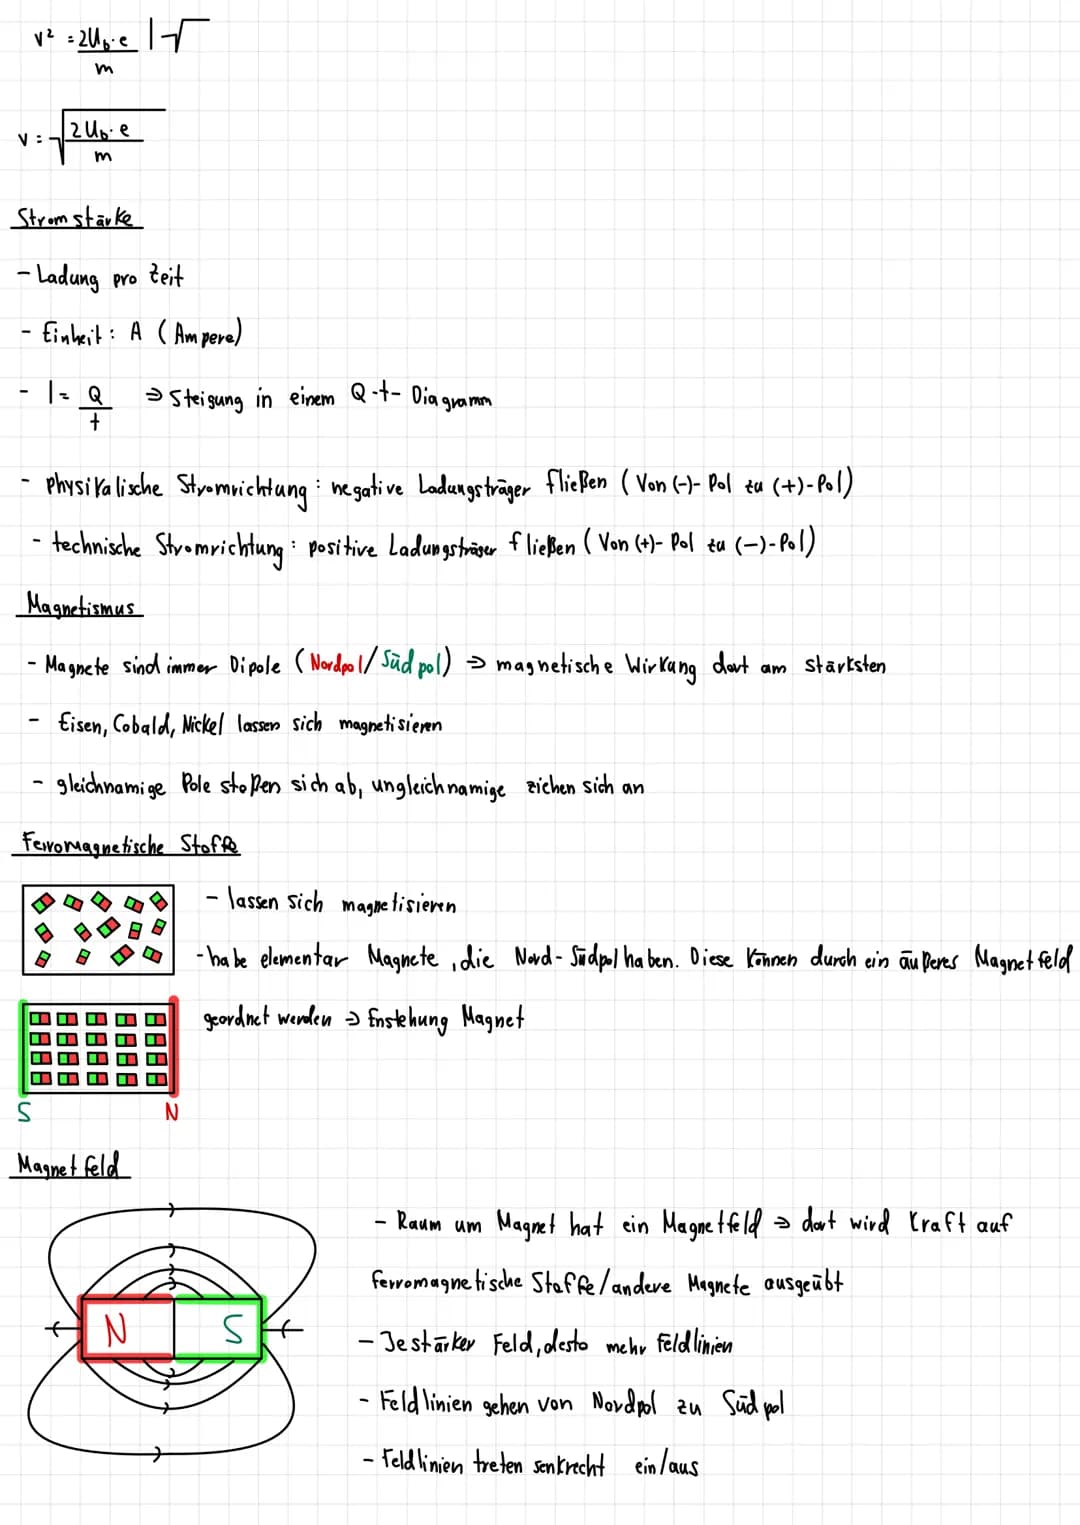 v² = 2U_b·e / m |√
v = √(2U_b·e / m)
Stromstärke
- Ladung pro Zeit
- Einheit: A (Ampere)
- I = Q / t ⇒ Steigung in einem Q-t-Diagramm
- physikalische Stromrichtung: negative Ladungsträger fließen (Von (-)-Pol zu (+)-Pol)
- technische Stromrichtung: positive Ladungsträger fließen (Von (+)-Pol zu (-)-Pol)
Magnetismus
- Magnete sind immer Dipole (Nordpol/Südpol) ⇒ magnetische Wirkung dort am stärksten
- Eisen, Cobald, Nickel lassen sich magnetisieren
- gleichnamige Pole stoßen sich ab, ungleichnamige ziehen sich an
Ferromagnetische Stoffe
- lassen sich magnetisieren
- habe elementar Magnete, die Nord-Südpol haben. Diese können durch ein äußeres Magnetfeld
geordnet werden → Enstehung Magnet
S N
Magnetfeld
- Raum um Magnet hat ein Magnetfeld → dort wird Kraft auf
ferromagnetische Stoffe/andere Magnete ausgeübt
N S
- Je stärker Feld, desto mehr Feldlinien
- Feldlinien gehen von Nordpol zu Südpol
- Feldlinien treten senkrecht ein/aus